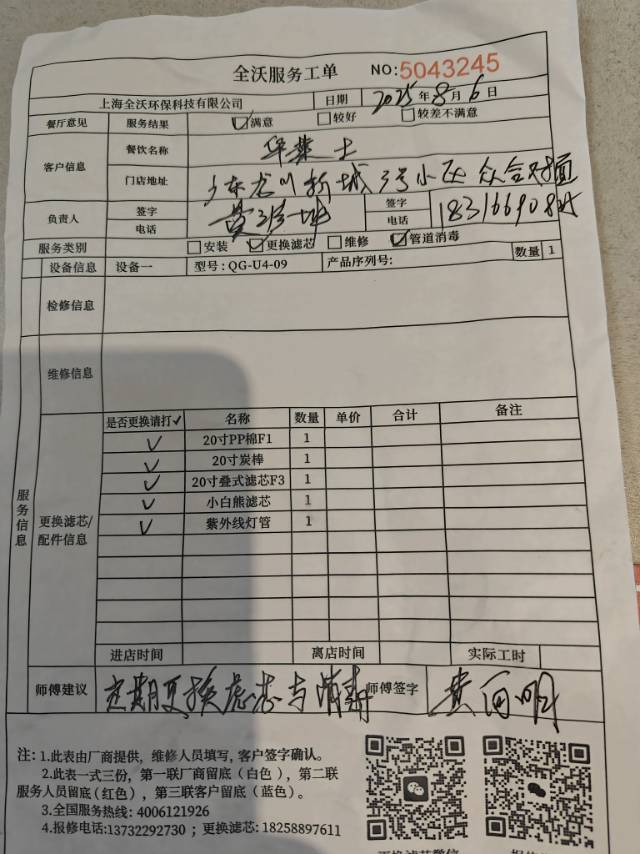 全沃服务工单 NO:5043245
上海全沃环保科技有限公司 日期 2025年8月6日
餐厅意见 服务结果 ☑满意 □较好 □较差不满意
客户信息 餐饮名称 华莱士
门店地址 广东龙川新城3号小区众合对面
负责人 签字 电话 签字 电话
服务类别 □安装 ☑更换滤芯 □维修 ☑管道消毒
设备信息 设备一 型号:QG-U4-09 产品序列号: 数量 1
检修信息
维修信息
服务信息
更换滤芯/配件信息
是否更换请打✓ 名称 数量 单价 合计 备注
✓ 20寸PP棉F1 1
✓ 20寸炭棒 1
✓ 20寸叠式滤芯F3 1
✓ 小白熊滤芯 1
✓ 紫外线灯管 1
进店时间 离店时间 实际工时
师傅建议 定期更换滤芯与消毒 师傅签字 黄向明
注: 1.此表由厂商提供，维修人员填写，客户签字确认。
2.此表一式三份，第一联厂商留底（白色），第二联
服务人员留底(红色)，第三联客户留底（蓝色）。
3.全国服务热线: 4006121926
4.报修电话:13732292730 ; 更换滤芯: 18258897611